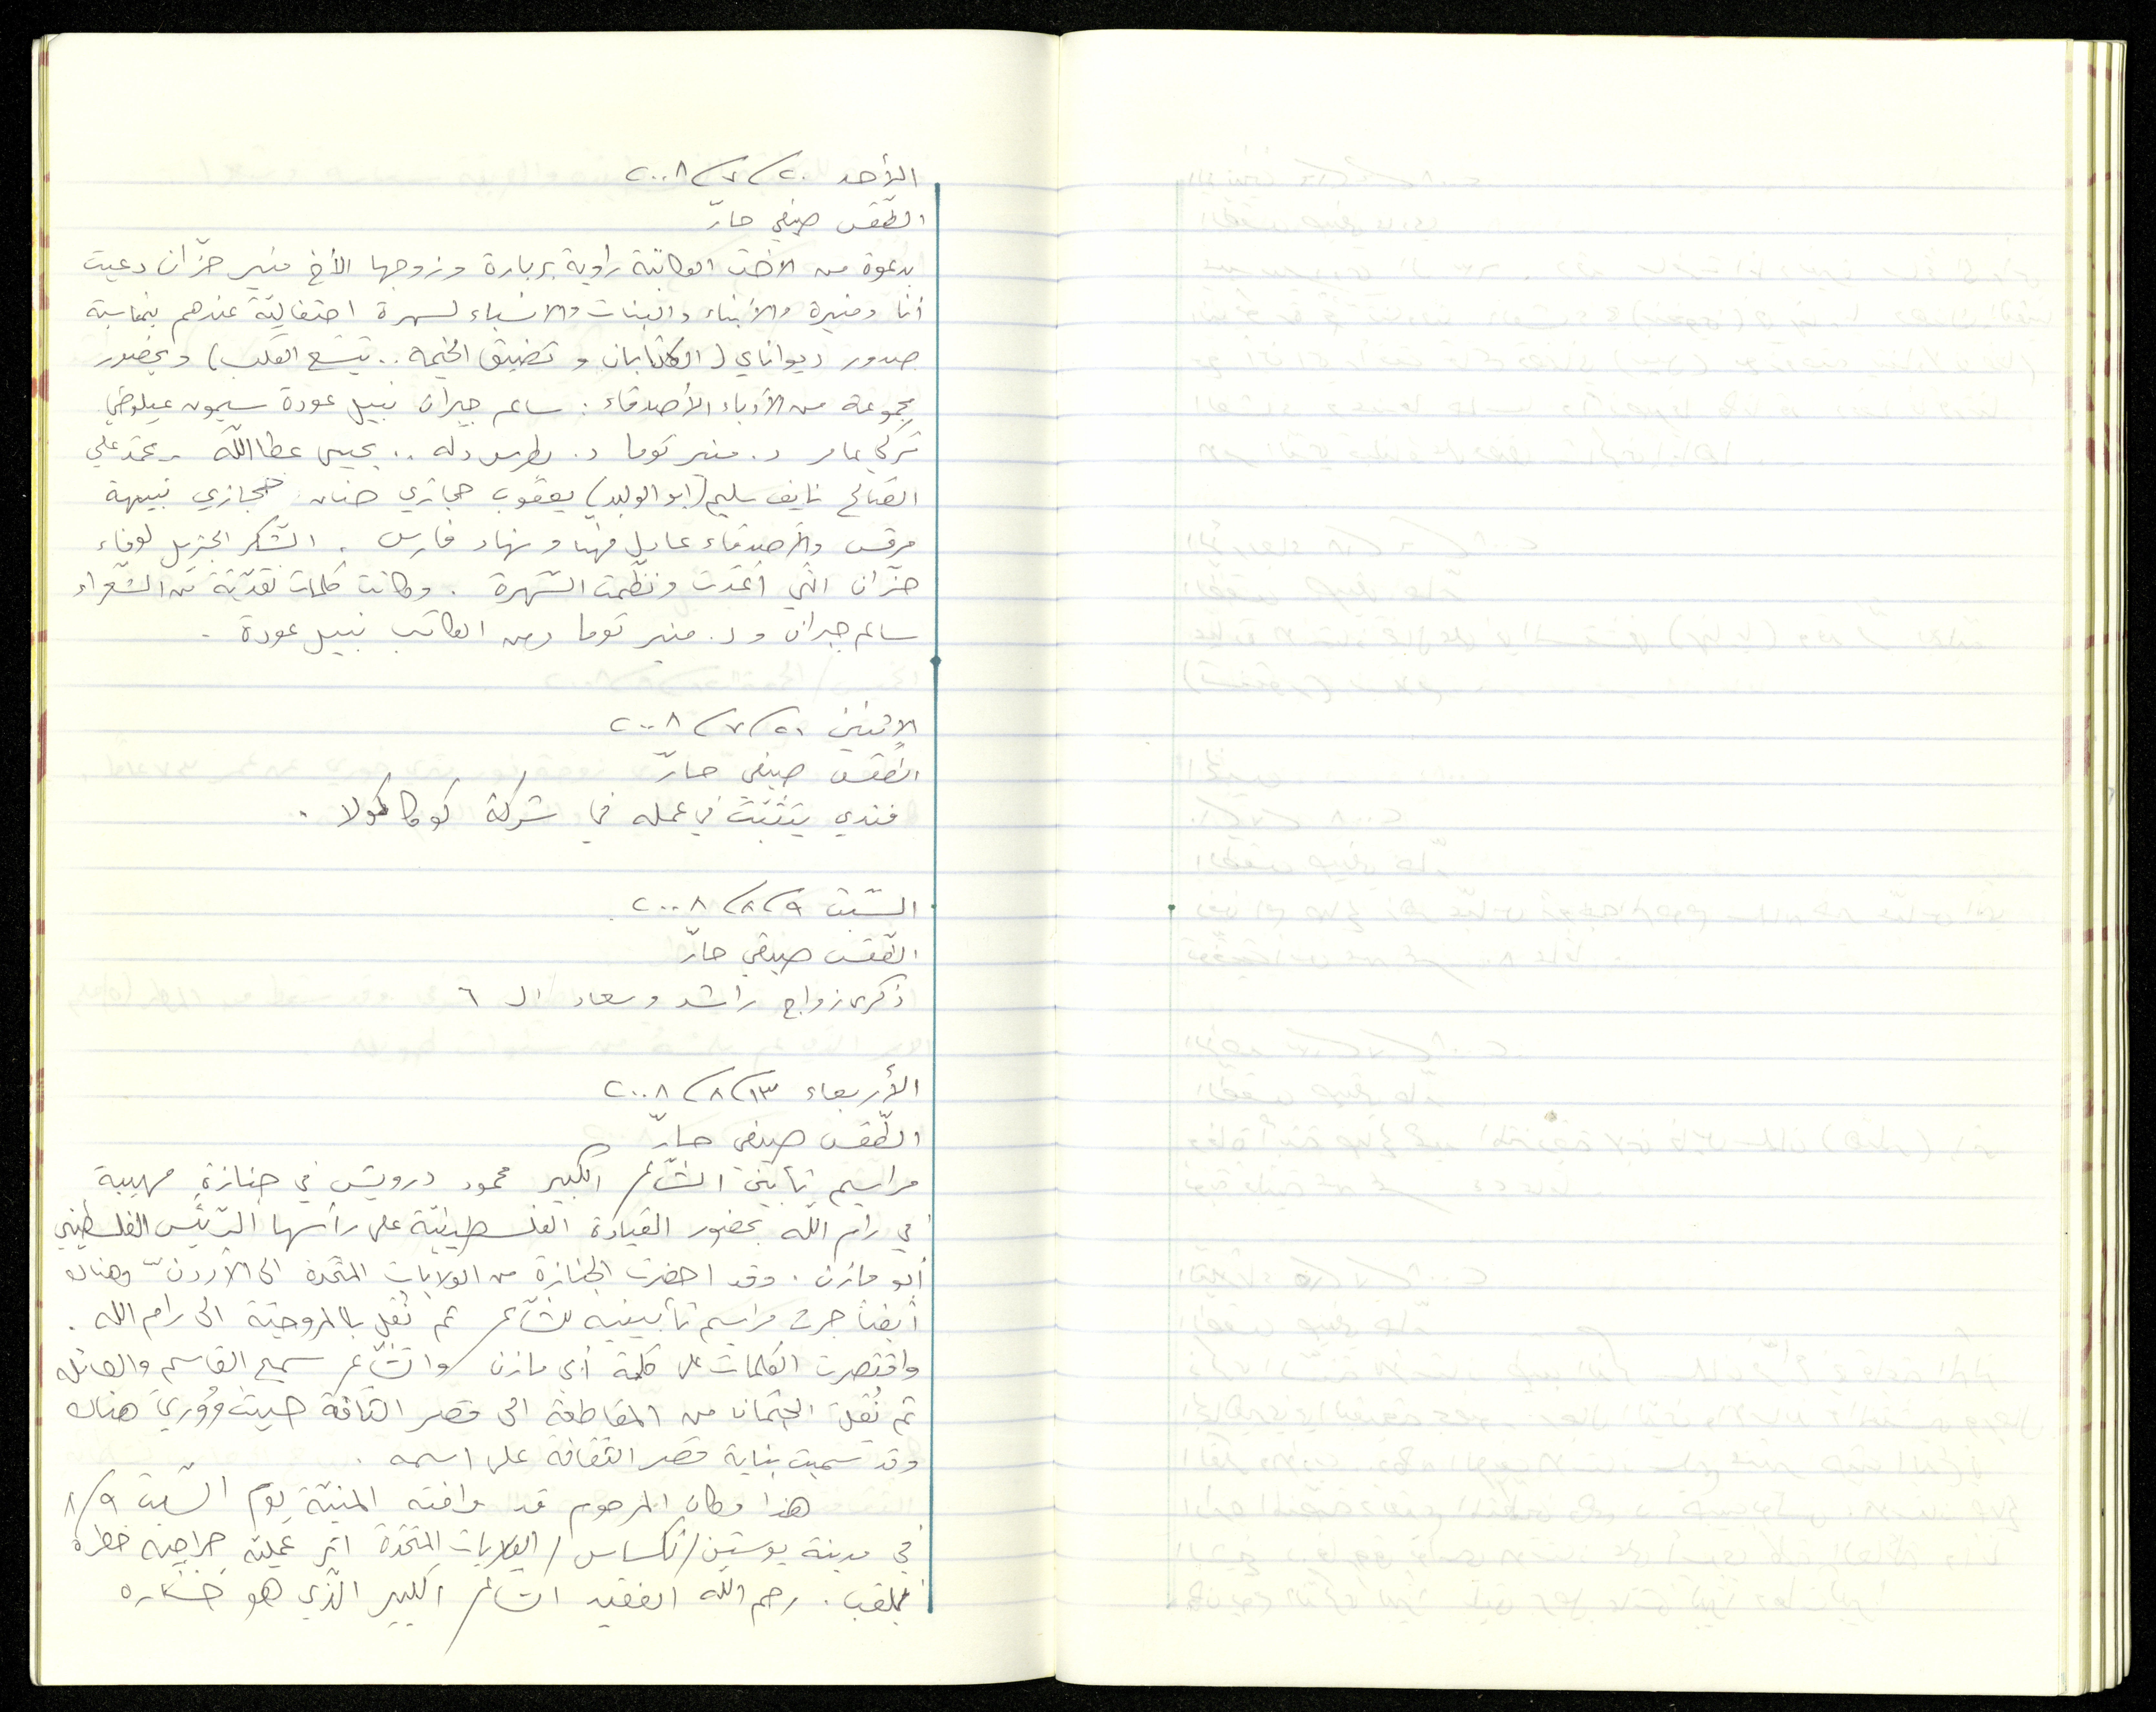 الأحد ٢٠/٧/٢٠٠٨
الطّقس صيفي حارّ
بدعوة من الأخت الكاتبة راوية بربارة وزوجها الأخ منير حزّان دعيت
أنا ومنيرة والأبناء والبنات والانسباء لسهرة احتفاليّة عندهم بمناسبة
صدور ديواناي (الكتابان و تضيق الخيمة.. يتّسع القلب) وبحضور
مجموعة من الأدباء الأصدقاء: سالم جبران نبيل عودة سيمون عيلوطي
تركي عامر د. منير توما د. بطرس دله .. يحيى عطاالله. محمّد علي
الصّالح نايف سليم (ابو الوليد) يعقوب حجازي حنان حجازي نبيهة
مرقس والأصدقاء عادل مهنا و نهاد فارس . الشّكر الجزيل لوفاء
حزّان الّتي أعدّت ونظّمت السّهرة . وكانت كلمات نقديّة من الشّعراء
سالم جبران و د. منير توما ومن الكاتب نبيل عودة .
الإثنين ٢١/٧/٢٠٠٨
الطّقس صيفي حارّ
فندي يتثبّت في عمله في شركة كوكا كولا .
السّبت ٩/٨/٢٠٠٨
الطّقس صيفي حارّ
ذكرى زواج راشد وسعاد الـ ٦
الأربعاء ١٣/٨/٢٠٠٨
الطّقس صيفي حارّ
مراسيم تأبين الشّاعر الكبير محمود درويش في جنازةٍ مهيبة
في رام اللّه بحضور القيادة الفلسطينيّة على رأسها الرّئيس الفلسطيني
أبو مازن . وقد احضرت الجنازة من الولايات المتّحدة الى الأردنّ وهناك
أيضاً جرت مراسيم تأبينيه للشّاعر ثم نُقل بالمروحيّة الى رام الله .
واقتصرت الكلمات على كلمة أبي مازن والشّاعر سميح القاسم والعائله
ثم نُقل الجثمان من المقاطعة الى قصر الثقافة حيث وُوري هناك
وقد سمّيت بناية قصر الثقافة على اسمه .
هذا وكان المرحوم قد وافته المنيّة يوم السّبت ٩/٨
في مدينة يوستن/تكساس/الولايات المتّحدة اثر عمليّة جراحيّه خطرة
بالقلب . رحم اللّه الفقيد الشاعر الكبير الّذي هو خساره